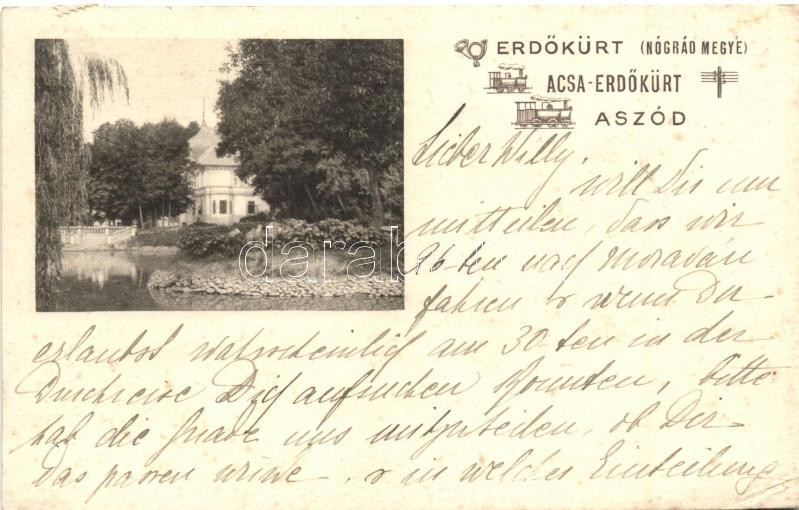 ERDŐKÜRT (NÓGRÁD MEGYE)
ACSA-ERDŐKÜRT
ASZÓD
Lieber Willy,
will Dir nur
mitteilen, dass wir
26-ten nach Moraván
fahren & wenn Du
erlaubst wahrscheinlich am 30.ten in der
Durchreise Dich aufsuchen könnten, bitte
hab die Gnade uns mitzuteilen, ob Dir
das passen würde & in welcher Einteilung
darab